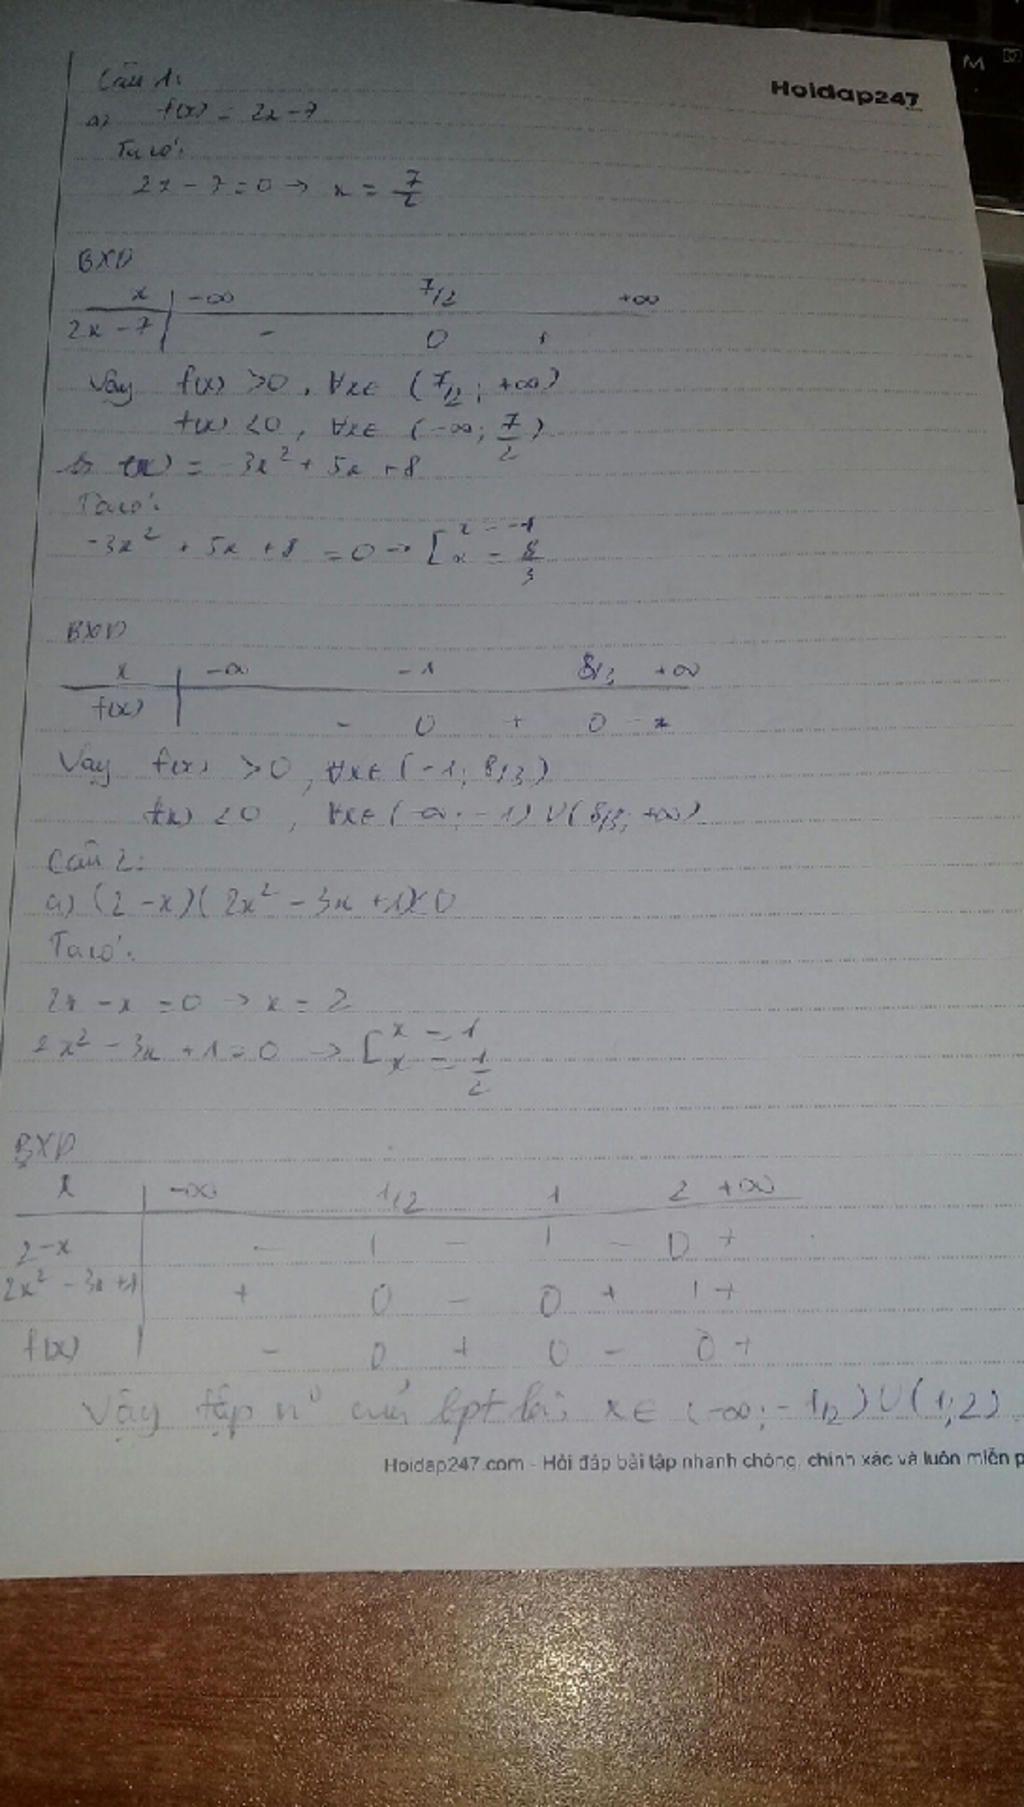 Hoidap247
Câu 1:
a) f(x) = 2x - 7
Ta có:
2x - 7 = 0 → x = 7/2
BXD
x | -∞ 7/2 +∞
2x - 7 | - 0 +
Vậy f(x) > 0, ∀x∈ (7/2; +∞)
f(x) < 0, ∀x∈ (-∞; 7/2)
b) f(x) = -3x² + 5x + 8
Ta có:
-3x² + 5x + 8 = 0 → [ x = -1
x = 8/3
BXD
x | -∞ -1 8/3 +∞
f(x) | - 0 + 0 -
Vậy f(x) > 0, ∀x∈ (-1; 8/3)
f(x) < 0, ∀x∈ (-∞; -1) U (8/3; +∞)
Câu 2:
a) (2 - x)(2x² - 3x + 1) < 0
Ta có:
2x - x = 0 → x = 2
2x² - 3x + 1 = 0 → [ x = 1
x = 1/2
BXD
x | -∞ 1/2 1 2 +∞
2 - x | - | - | - 0 +
2x² - 3x + 1 | + 0 - 0 + | +
f(x) | - 0 + 0 - 0 +
Vậy tập n⁰ của bpt là: x∈ (-∞; -1/2) U (1; 2)
Hoidap247.com - Hỏi đáp bài tập nhanh chóng, chính xác và luôn miễn p